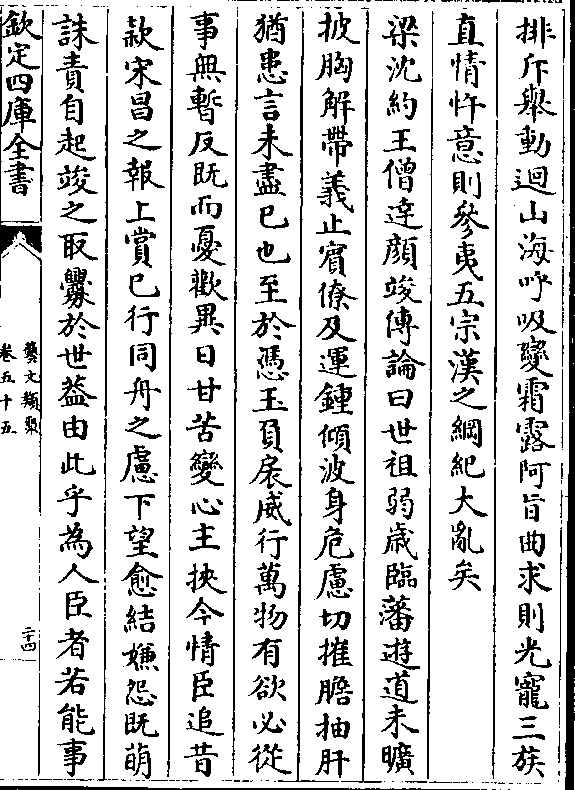 排斥舉動迴山海呼吸變霜露阿旨曲求則光寵三族
直情忤意則參夷五宗漢之綱紀大亂矣
梁沈約王僧達顔竣傳論曰世祖弱歳臨藩遊道未曠
披胸解帶義止賓僚及運鍾傾波身危慮切摧膽抽肝
猶患言未盡已也至於憑玉負扆威行萬物有欲必從
事無暫反既而憂歡異日甘苦變心主挾今情臣追昔
欵宋昌之報上賞已行同舟之慮下望愈結嫌怨既萌
誅責自起竣之取釁於世葢由此乎為人臣者若能事
欽定四庫全書
藝文類聚
卷五十五
二十四